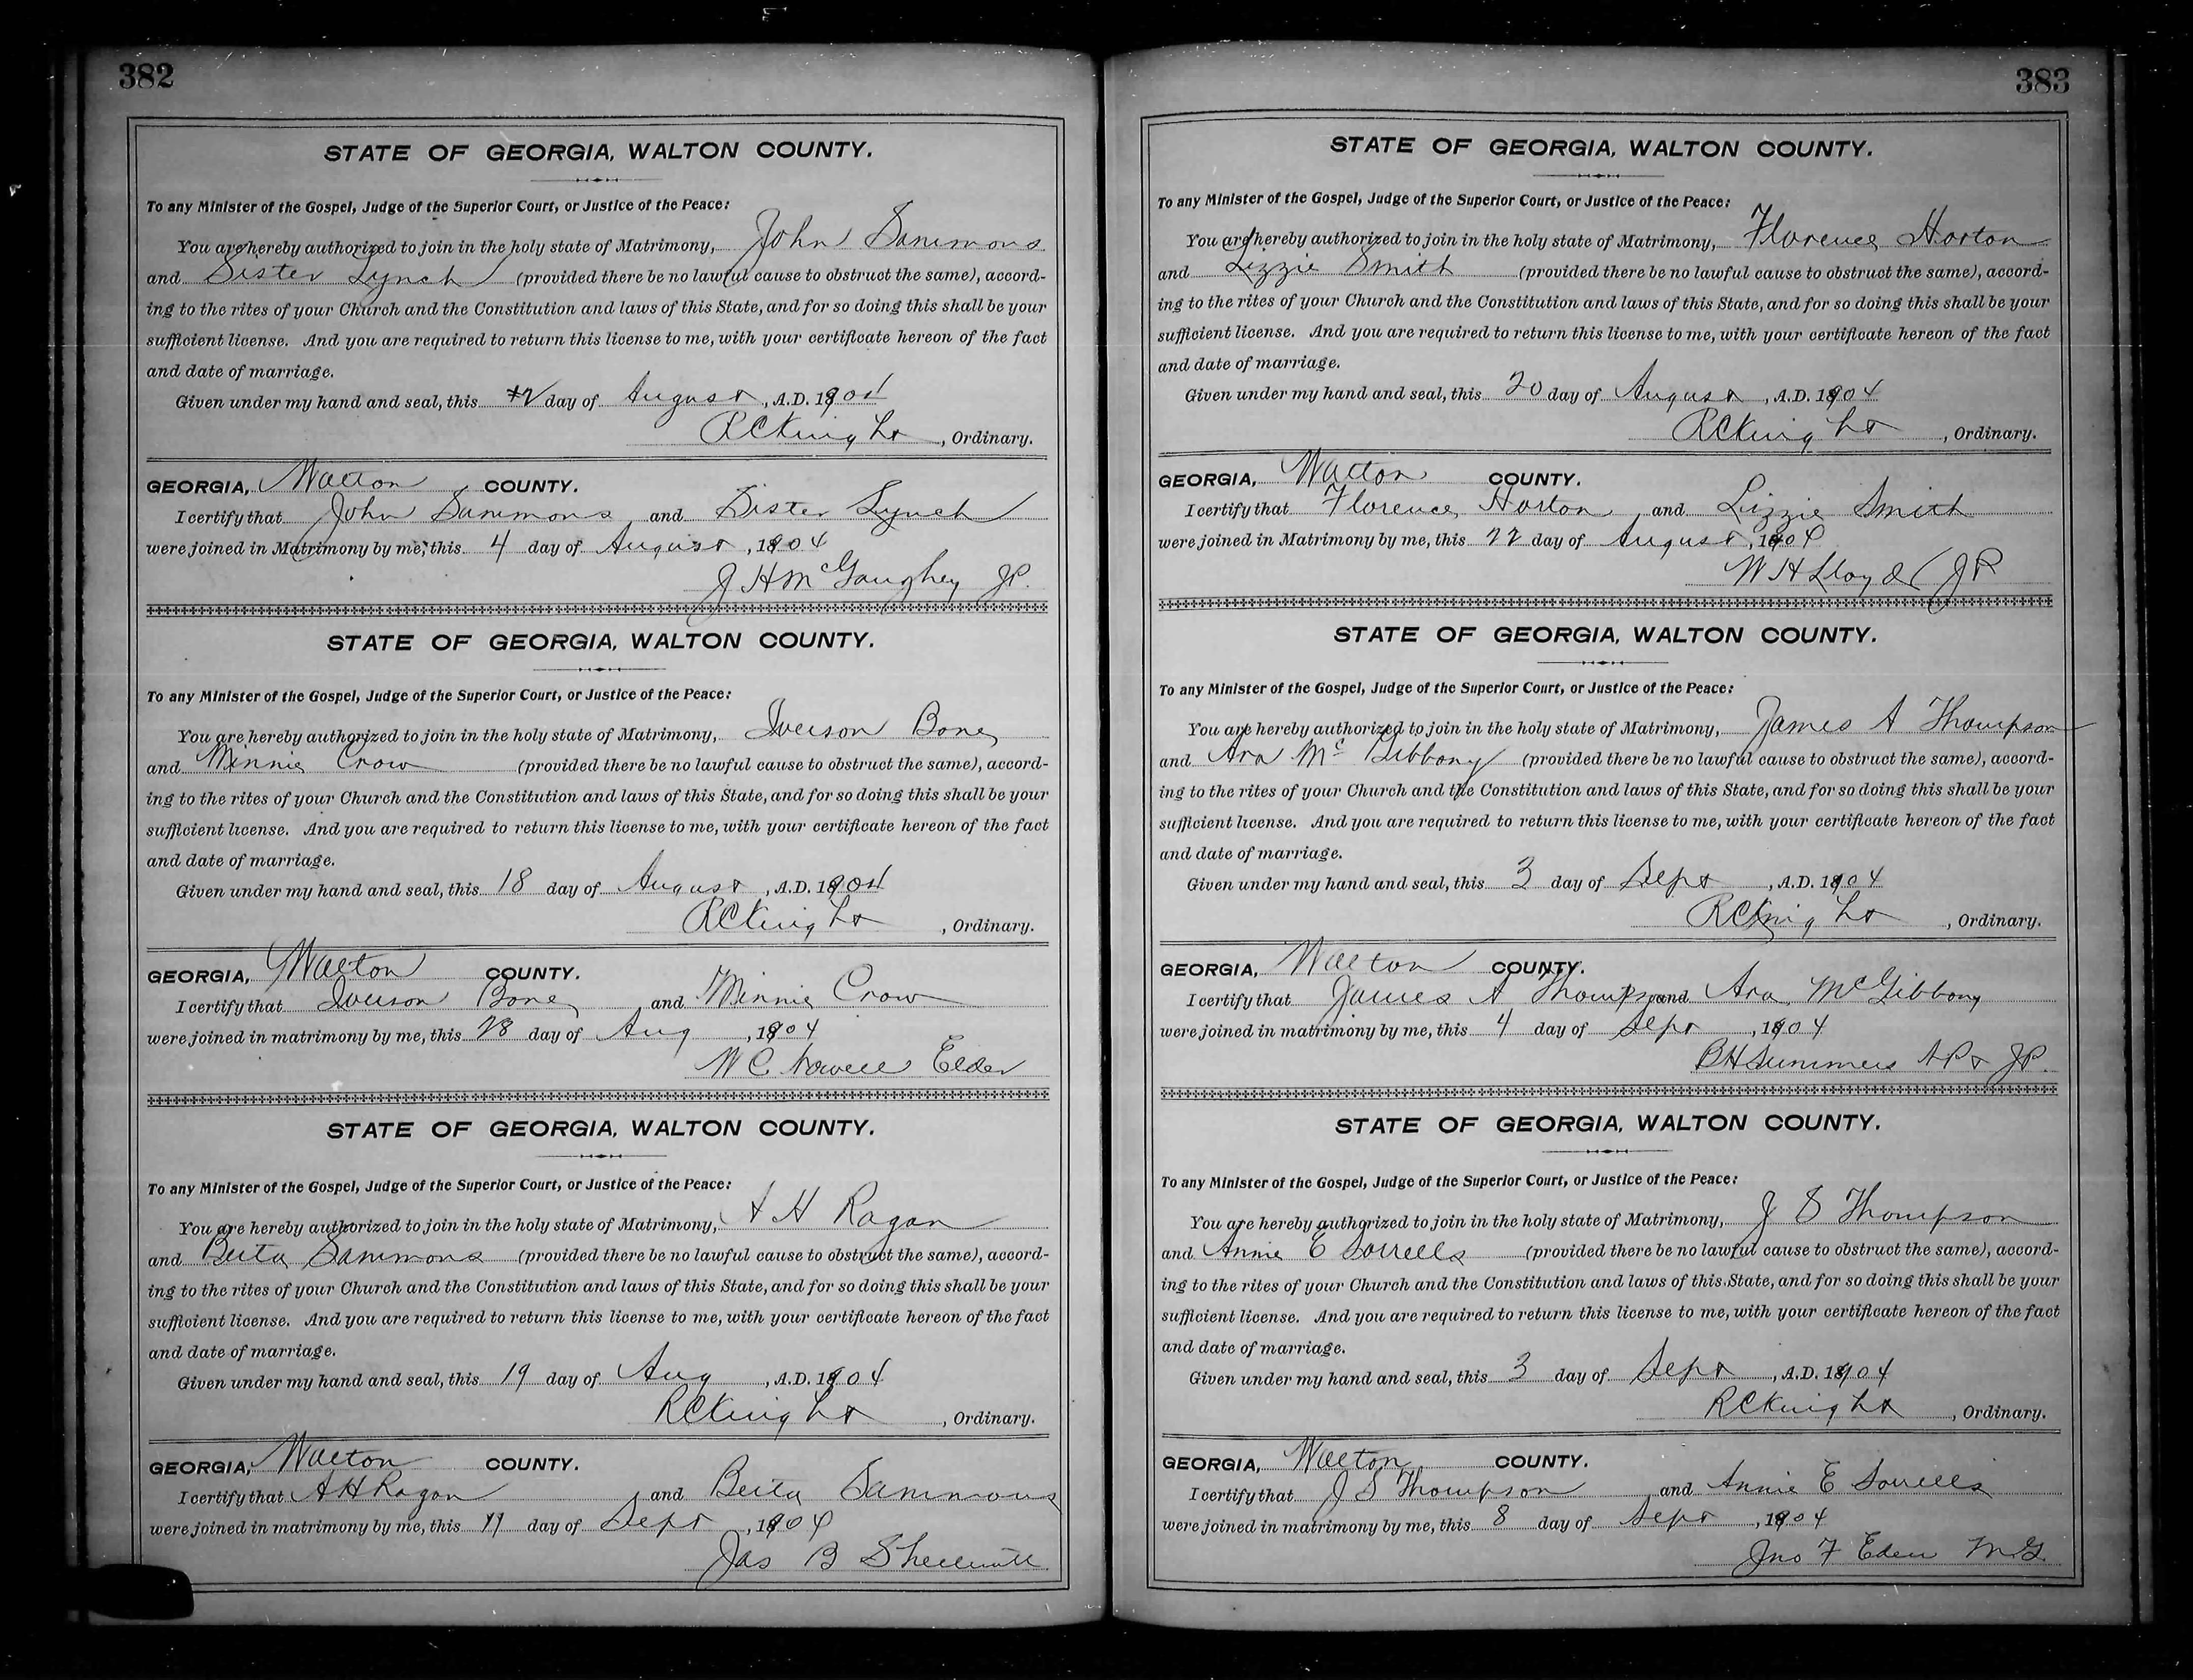 382
STATE OF GEORGIA, WALTON COUNTY.
To any Minister of the Gospel, Judge of the Superior Court, or Justice of the Peace:
You are hereby authorized to join in the holy state of Matrimony, John Sammons
and Sister Lynch (provided there be no lawful cause to obstruct the same), accord-
ing to the rites of your Church and the Constitution and laws of this State, and for so doing this shall be your
sufficient license. And you are required to return this license to me, with your certificate hereon of the fact
and date of marriage.
Given under my hand and seal, this day of August, A.D. 1904
R C Knight, Ordinary.
GEORGIA, Walton COUNTY.
I certify that John Sammons and Sister Lynch
were joined in Matrimony by me, this 4 day of August, 1904
J H McGaughey JP.
STATE OF GEORGIA, WALTON COUNTY.
To any Minister of the Gospel, Judge of the Superior Court, or Justice of the Peace:
You are hereby authorized to join in the holy state of Matrimony, Iverson Bone
and Minnie Crow (provided there be no lawful cause to obstruct the same), accord-
ing to the rites of your Church and the Constitution and laws of this State, and for so doing this shall be your
sufficient license. And you are required to return this license to me, with your certificate hereon of the fact
and date of marriage.
Given under my hand and seal, this 18 day of August, A.D. 1904
R C Knight, Ordinary.
GEORGIA, Walton COUNTY.
I certify that Iverson Bone and Minnie Crow
were joined in matrimony by me, this 28 day of Aug, 1904
W C Nowell Elder
STATE OF GEORGIA, WALTON COUNTY.
To any Minister of the Gospel, Judge of the Superior Court, or Justice of the Peace:
You are hereby authorized to join in the holy state of Matrimony, A H Ragan
and Berta Sammons (provided there be no lawful cause to obstruct the same), accord-
ing to the rites of your Church and the Constitution and laws of this State, and for so doing this shall be your
sufficient license. And you are required to return this license to me, with your certificate hereon of the fact
and date of marriage.
Given under my hand and seal, this 19 day of Aug, A.D. 1904
R C Knight, Ordinary.
GEORGIA, Walton COUNTY.
I certify that A H Ragan and Berta Sammons
were joined in matrimony by me, this 11 day of Sept, 1904
Jas B
383
STATE OF GEORGIA, WALTON COUNTY.
To any Minister of the Gospel, Judge of the Superior Court, or Justice of the Peace:
You are hereby authorized to join in the holy state of Matrimony, Florence Horton
and Lizzie Smith (provided there be no lawful cause to obstruct the same), accord-
ing to the rites of your Church and the Constitution and laws of this State, and for so doing this shall be your
sufficient license. And you are required to return this license to me, with your certificate hereon of the fact
and date of marriage.
Given under my hand and seal, this 20 day of August, A.D. 1904
R C Knight, Ordinary.
GEORGIA, Walton COUNTY.
I certify that Florence Horton and Lizzie Smith
were joined in Matrimony by me, this 22 day of August, 1904
W H Lloyd JP
STATE OF GEORGIA, WALTON COUNTY.
To any Minister of the Gospel, Judge of the Superior Court, or Justice of the Peace:
You are hereby authorized to join in the holy state of Matrimony, James A Thompson
and Ara McGibbony (provided there be no lawful cause to obstruct the same), accord-
ing to the rites of your Church and the Constitution and laws of this State, and for so doing this shall be your
sufficient license. And you are required to return this license to me, with your certificate hereon of the fact
and date of marriage.
Given under my hand and seal, this 3 day of Sept, A.D. 1904
R C Knight, Ordinary.
GEORGIA, Walton COUNTY.
I certify that James A Thompson and Ara McGibbony
were joined in matrimony by me, this 4 day of Sept, 1904
B H Summers N P & J P.
STATE OF GEORGIA, WALTON COUNTY.
To any Minister of the Gospel, Judge of the Superior Court, or Justice of the Peace:
You are hereby authorized to join in the holy state of Matrimony, J S Thompson
and Annie E Sorrells (provided there be no lawful cause to obstruct the same), accord-
ing to the rites of your Church and the Constitution and laws of this State, and for so doing this shall be your
sufficient license. And you are required to return this license to me, with your certificate hereon of the fact
and date of marriage.
Given under my hand and seal, this 3 day of Sept, A.D. 1904
R C Knight, Ordinary.
GEORGIA, Walton COUNTY.
I certify that J S Thompson and Annie E Sorrells
were joined in matrimony by me, this 8 day of Sept, 1904
Jno F Eden M.G.